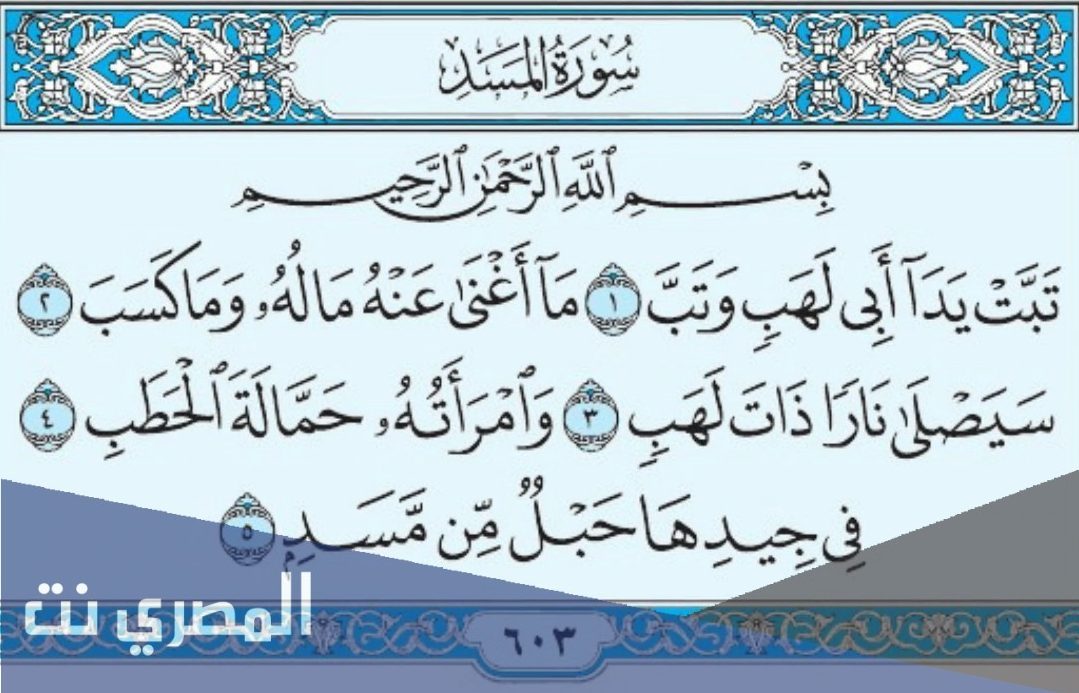 سُورَةُ المَسَدِ
بِسْمِ ٱللَّهِ ٱلرَّحْمَٰنِ ٱلرَّحِيمِ
تَبَّتْ يَدَآ أَبِى لَهَبٍ وَتَبَّ ١ مَآ أَغْنَىٰ عَنْهُ مَالُهُۥ وَمَا كَسَبَ ٢
سَيَصْلَىٰ نَارًا ذَاتَ لَهَبٍ ٣ وَٱمْرَأَتُهُۥ حَمَّالَةَ ٱلْحَطَبِ ٤
فِى جِيدِهَا حَبْلٌ مِّن مَّسَدٍۭ ٥
المصري نت
٦٠٣